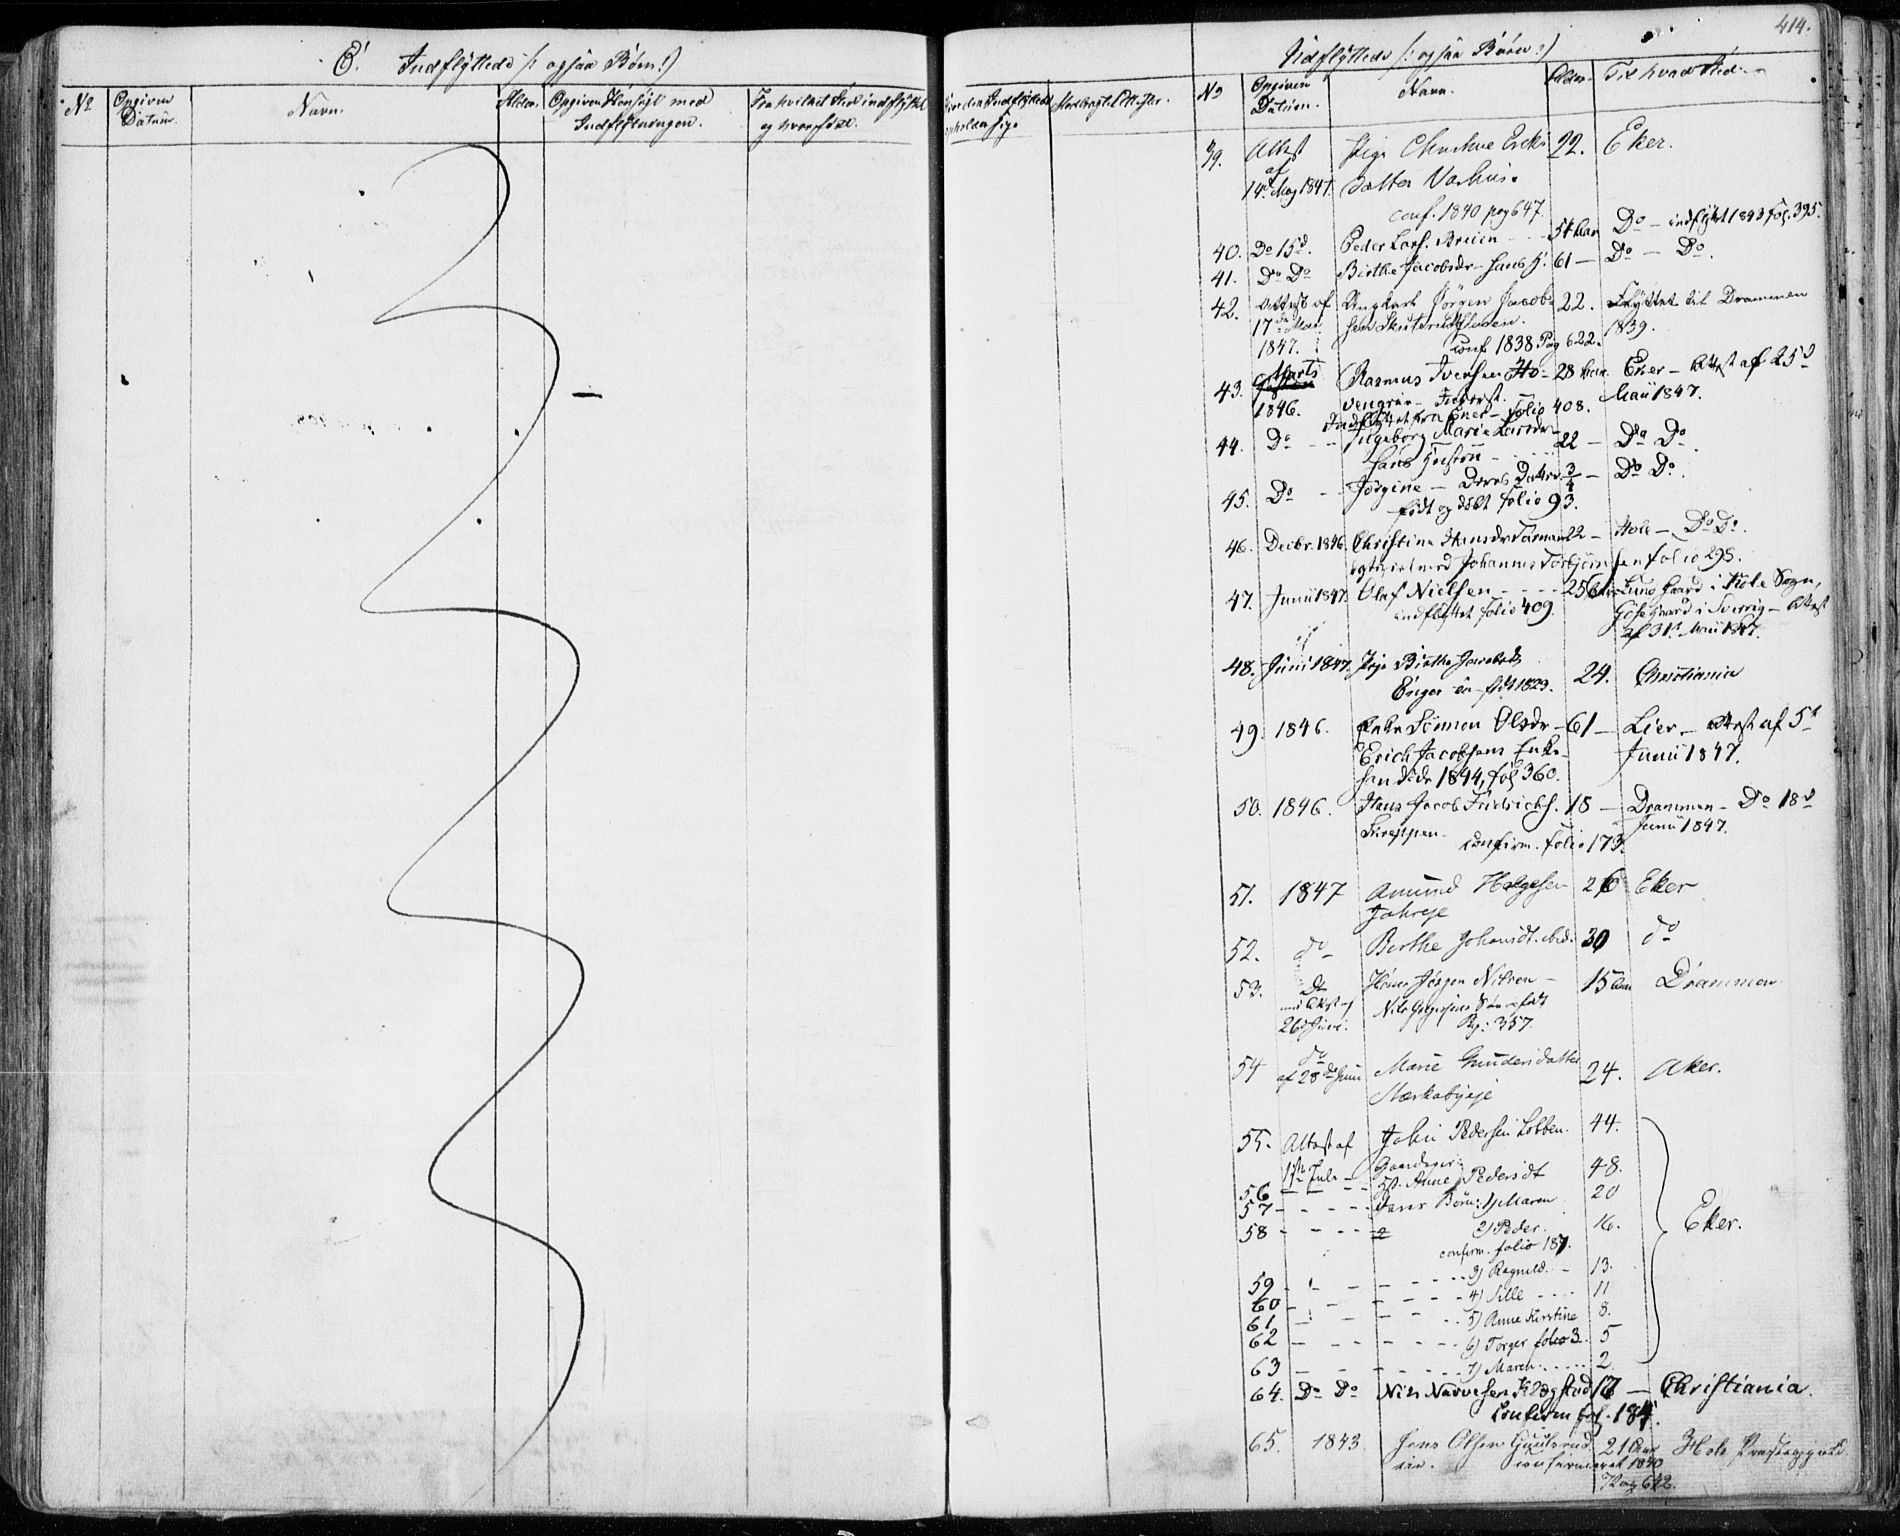 414.
E. Indflyttede /: ogsaa Børn :/
No
Opgiven Datum.
Navn.
Alder.
Opgiven Hensigt med Indflytningen.
Fra hvilket Sted indflyttet og hvorfra.
Hvor den Indflyttede opholder sig.
Medbragt Attester.
Udflyttede /: ogsaa Børn :/
No
Opgiven Datum.
Navn.
Alder.
Til hvad Sted.
39. Attest Pige 22. Eker.
af
14de Maj 1847. Datter
conf. 1840 pag 647.
40. Do 15d. Peder Lars. Breien - - 54 Aar Do - indflyttet 1843 fol. 395.
41. Do Do Birthe Jacobsdr - hans H. 61 - Do - Do.
42. Attest af Ungkarl Jørgen Jacob- 22. Flyttet til Drammen
17de Mai sen 1839.
1847. conf 1838 Pag 622.
43. Marts Rasmus Iversen Ho- 28 Aar. Eker - Attest af 25d
1846. vengen - Inderst. Maii 1847.
Indflyttet fra Eker - folio 408.
44. Do - - Ingeborg Marie Larsdr - 22 - Do Do
hans Hustru - - -
45. Do - - Jørgine - Deres Datter 3/4 - Do Do.
født og døbt folio 93.
46. Decbr. 1846. Christine Hansdr 22 - Hole - Do Do.
ægteviet med Johannes Torbjørnsen folio 298.
47. Junii 1847. Olaf Nielsen - - - 25 Gaard i Hole Sogn,
indflyttet folio 409. i Sverrig - Attest
af 31t Maii 1847.
48. Juni 1847. Pige Birthe Jacobsdr 24. Christiania
Enger - født 1823.
49. 1846. Enke Simmen Olsdr - 61 - Lier - Attest af 5t
Erich Jacobsens Enke - Junii 1847.
han døde 1844, fol 360.
50. 1846. Hans Jacob Fridrichs. 18 - Drammen - Do 18d
confirm. folio 173. Junii 1847.
51. 1847 Amund Helgesen 26 Eker
52. do Berthe Johansdt. ibid. 30 do
53. Do Hans Jørgen Nilsen - 15 Aar Drammen
med Attest af Nils Søn født
26d Juni. Pag: 357.
54 do Marie Gundersdatter 24. Aker.
af 28de Juni
55. Attest af John Pedersen Lobben. 44.
1ste Juli - Gaardejer
56 - - - - Anne Pedersdt 48.
57 - - - - deres Børn: 1) Maren 20
58 - - - - 2) Peder. 16. Eker.
confirm. folio 187.
59 - - - - - 3) Ragnild. - 13.
60 - - - - - 4) Sille - - - 11
61 - - - - - 5) Anne Kirstine 8.
62 - - - - - 6) Torger folio 3. 5
63 - - - - - 7) Maren - - - 2.
64. Do Do Nils Narvesen 17 - Christiania.
Confirm fol. 184.
65. 1843. Jens Olsen 21 Aar Hole Præstegjeld.
confirmeret 1840
Pag 642.